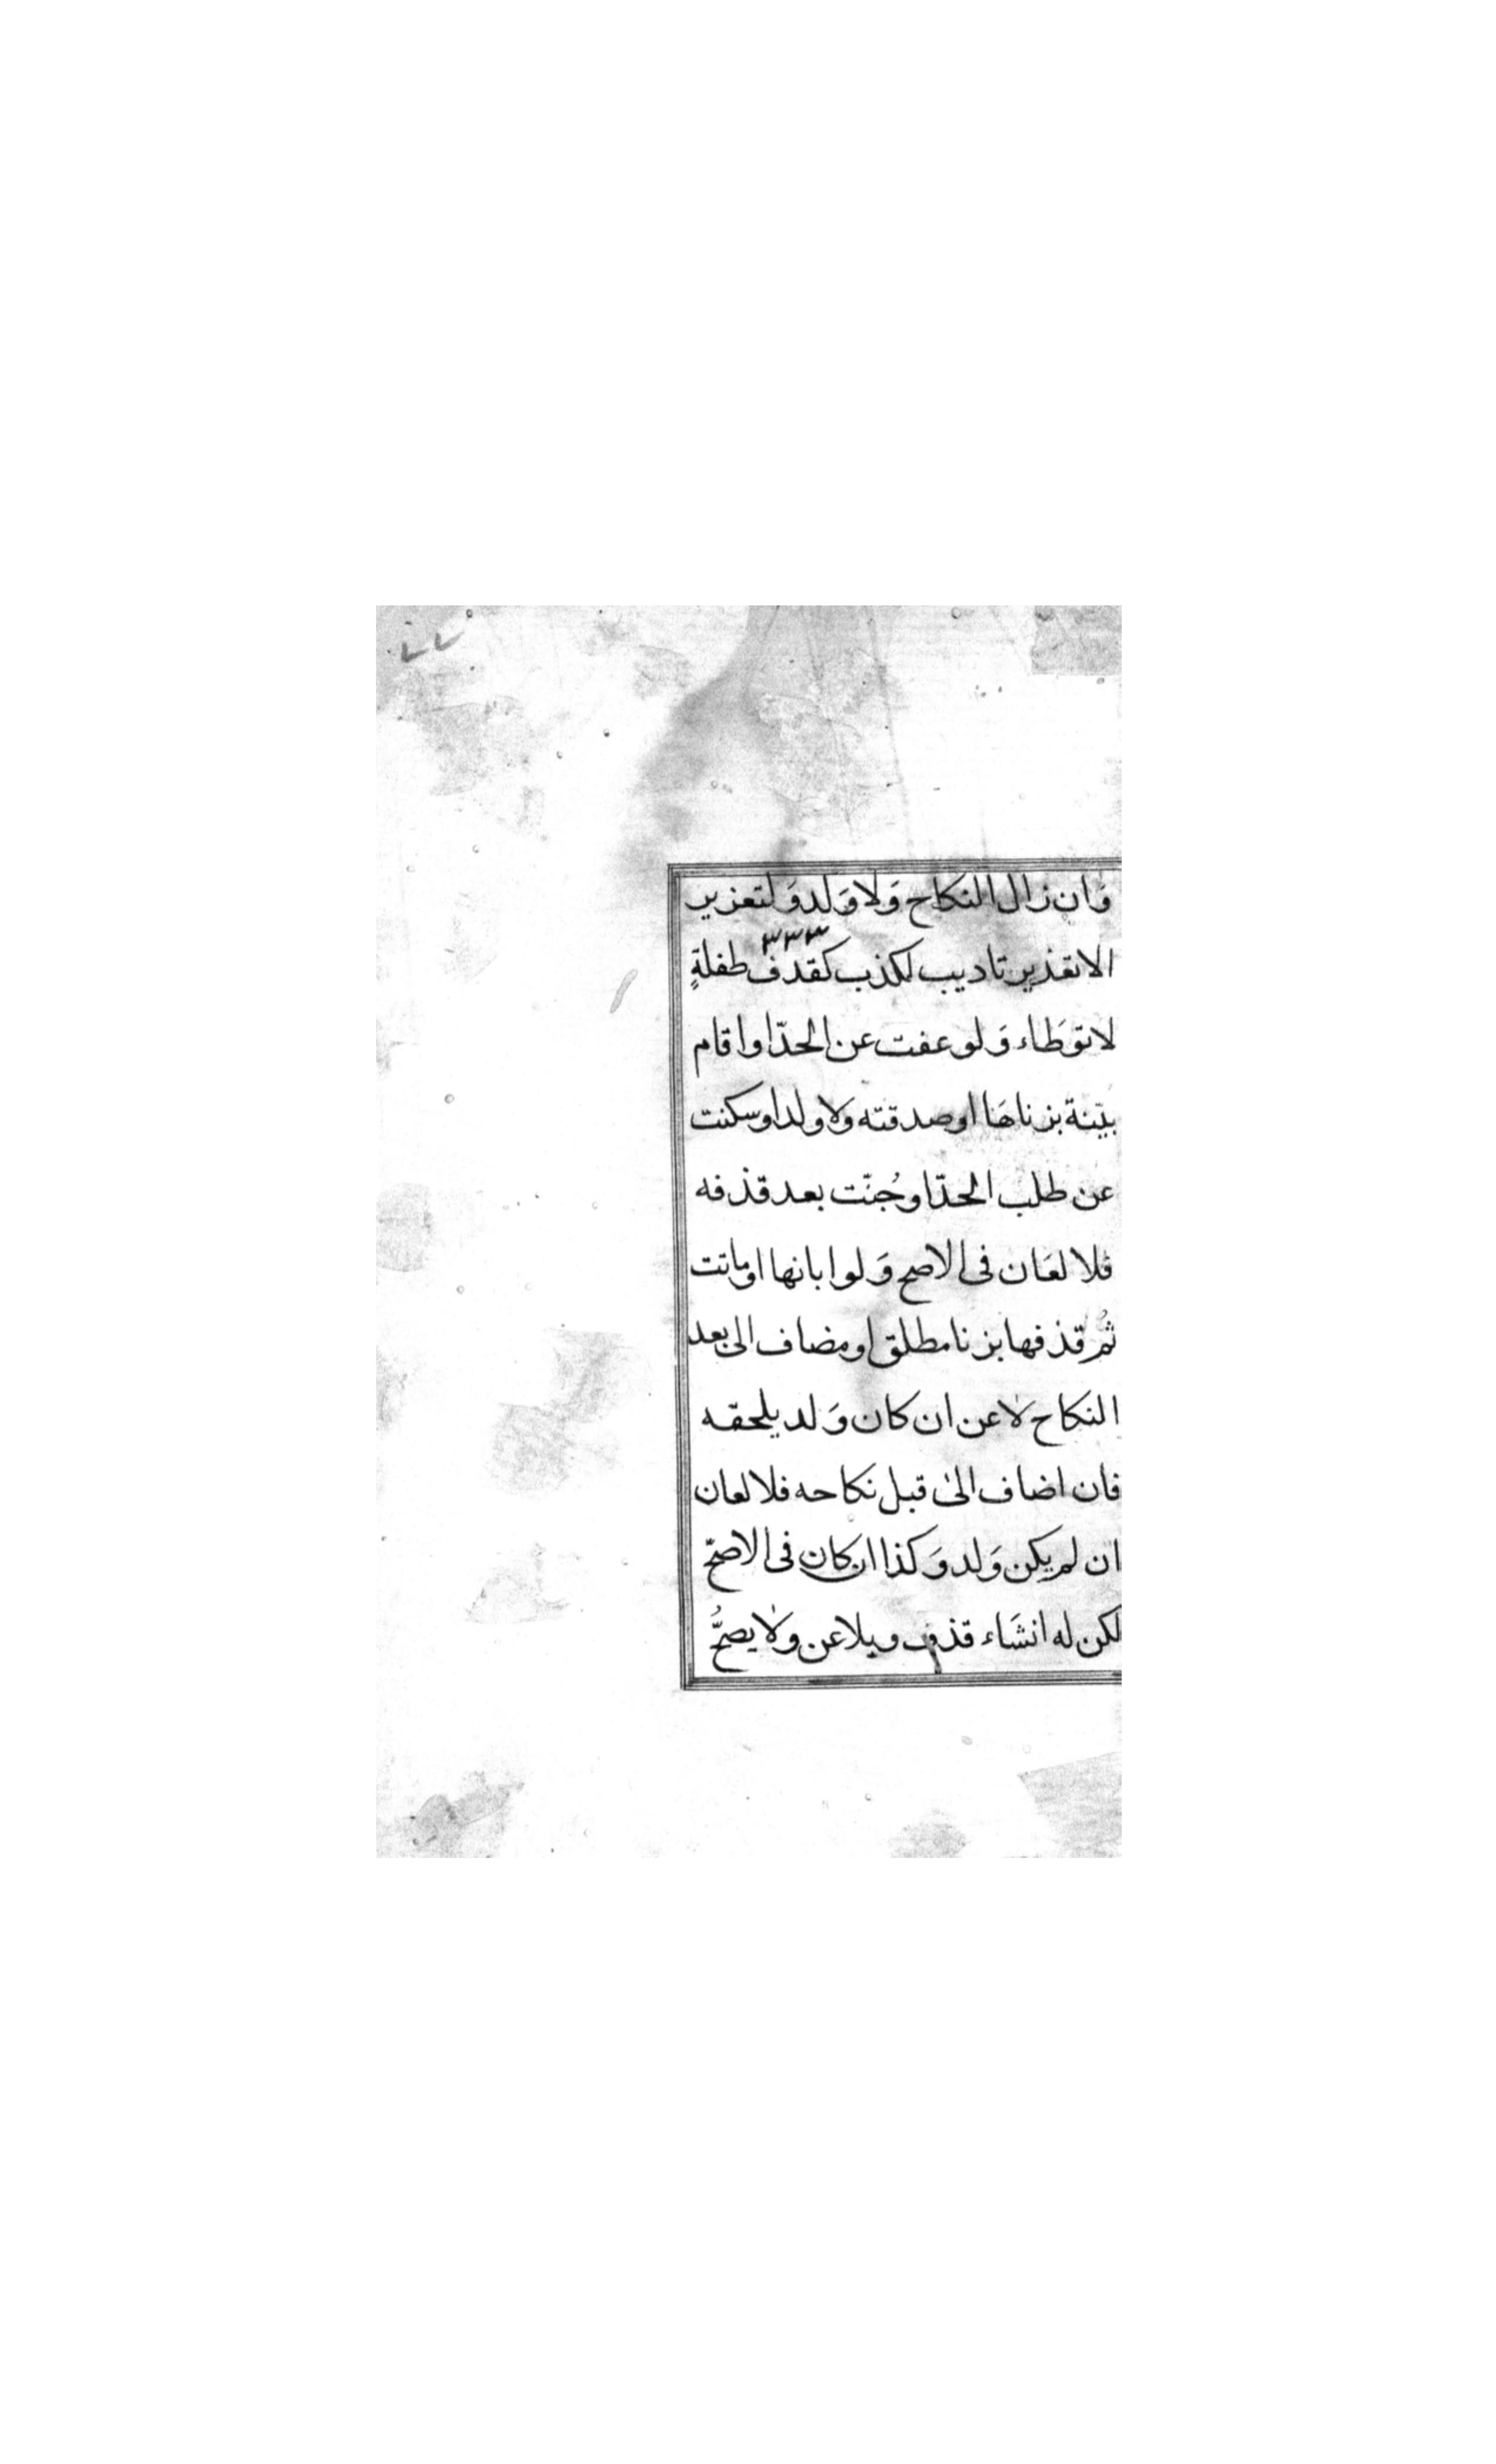 ٧٧
وَان زال النكاح وَلا وَلد وَلتعزير
الا تعذير تاديب لكذب كقدف طفلةٍ
لا توَطاء وَلو عفت عن الحدّ او اقام
بيّنة بزناهَا او صدقته ولا ولد او سكنت
عن طلب الحدّ او جُنّت بعد قذفه
فلا لعَان فى الاصح وَلو ابانها او ماتت
ثُم قذفها بزنا مطلق او مضاف الى بعد
النكاح لاعن ان كان وَلد يلحقه
فان اضاف الى قبل نكاحه فلا لعان
ان لم يكن وَلد وَكذا ان كان فى الاصحّ
لكن له انشَاء قذف ويلاعن ولا يصحُّ